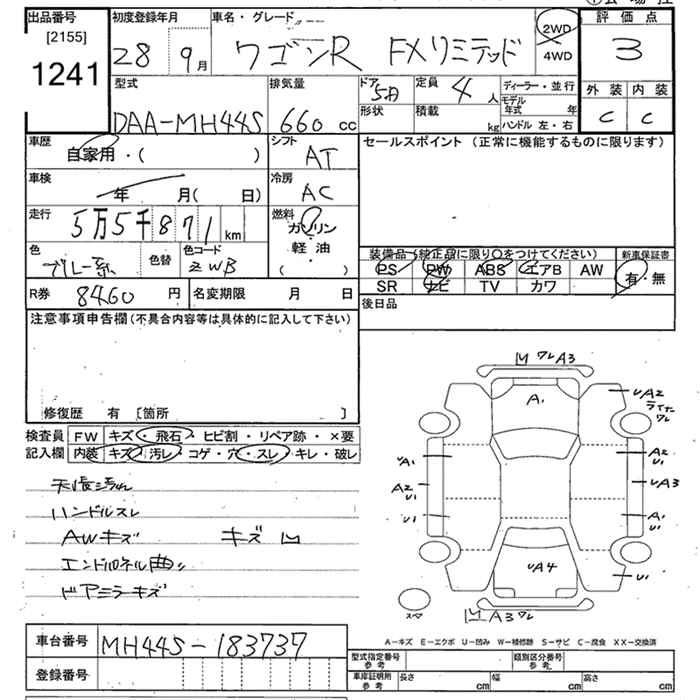 出品番号
[2155]
1241
初度登録年月
28 9月
車名・グレード
ワゴンR FXリミテッド
2WD
4WD
評価点
3
外装 内装
C C
型式
DAA-MH44S
排気量
660 cc
ドア 5
形状
定員 4 人
積載 kg
ディーラー・並行
モデル年式 年
ハンドル 左・右
車歴
自家用・( )
シフト
AT
車検
年 月( 日)
冷房
AC
走行
5万5千871 km
燃料
ガソリン
軽・油
( )
色
ブルー系
色替
色コード
ZWB
R券 8460 円
名変期限 月 日
セールスポイント (正常に機能するものに限ります)
装備品 (純正品に限り○をつけてください)
PS PW ABS エアB AW
SR ナビ TV カワ
新車保証書
有・無
後日品
注意事項申告欄(不具合内容等は具体的に記入して下さい)
修復歴 有 [箇所 ]
検査員 FW キズ・飛石・ヒビ割・リペア跡・×要
記入欄 内装 キズ・汚レ・コゲ・穴・スレ・キレ・破レ
天張汚れ
ハンドルスレ
AWキズ キズ凹
エンドパネル曲り
ドアミラーキズ
凹 ワレA3
A1
UA2
ライナー
ワレ
UA1
A2
U1
A2
U1
UA3
U1
A1
U1
UA4
U1
スペア
凹A3ワレ
A-キズ E-エクボ U-凹み W-補修跡 S-サビ C-腐食 XX-交換済
車台番号 MH44S-183737
登録番号
型式指定番号
参考
類別区分番号
参考
車庫証明用
参考
長さ cm 幅 cm 高さ cm